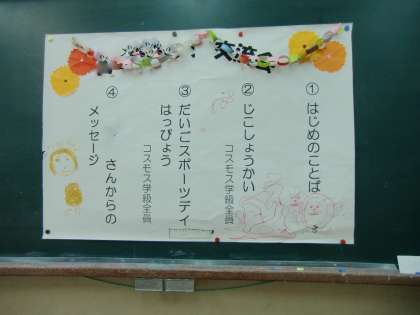 交流会
① はじめのことば
② じこしょうかい
コスモス学級全員
③ だいごスポーツデイ
はっぴょう
コスモス学級全員
④ さんからの
メッセージ